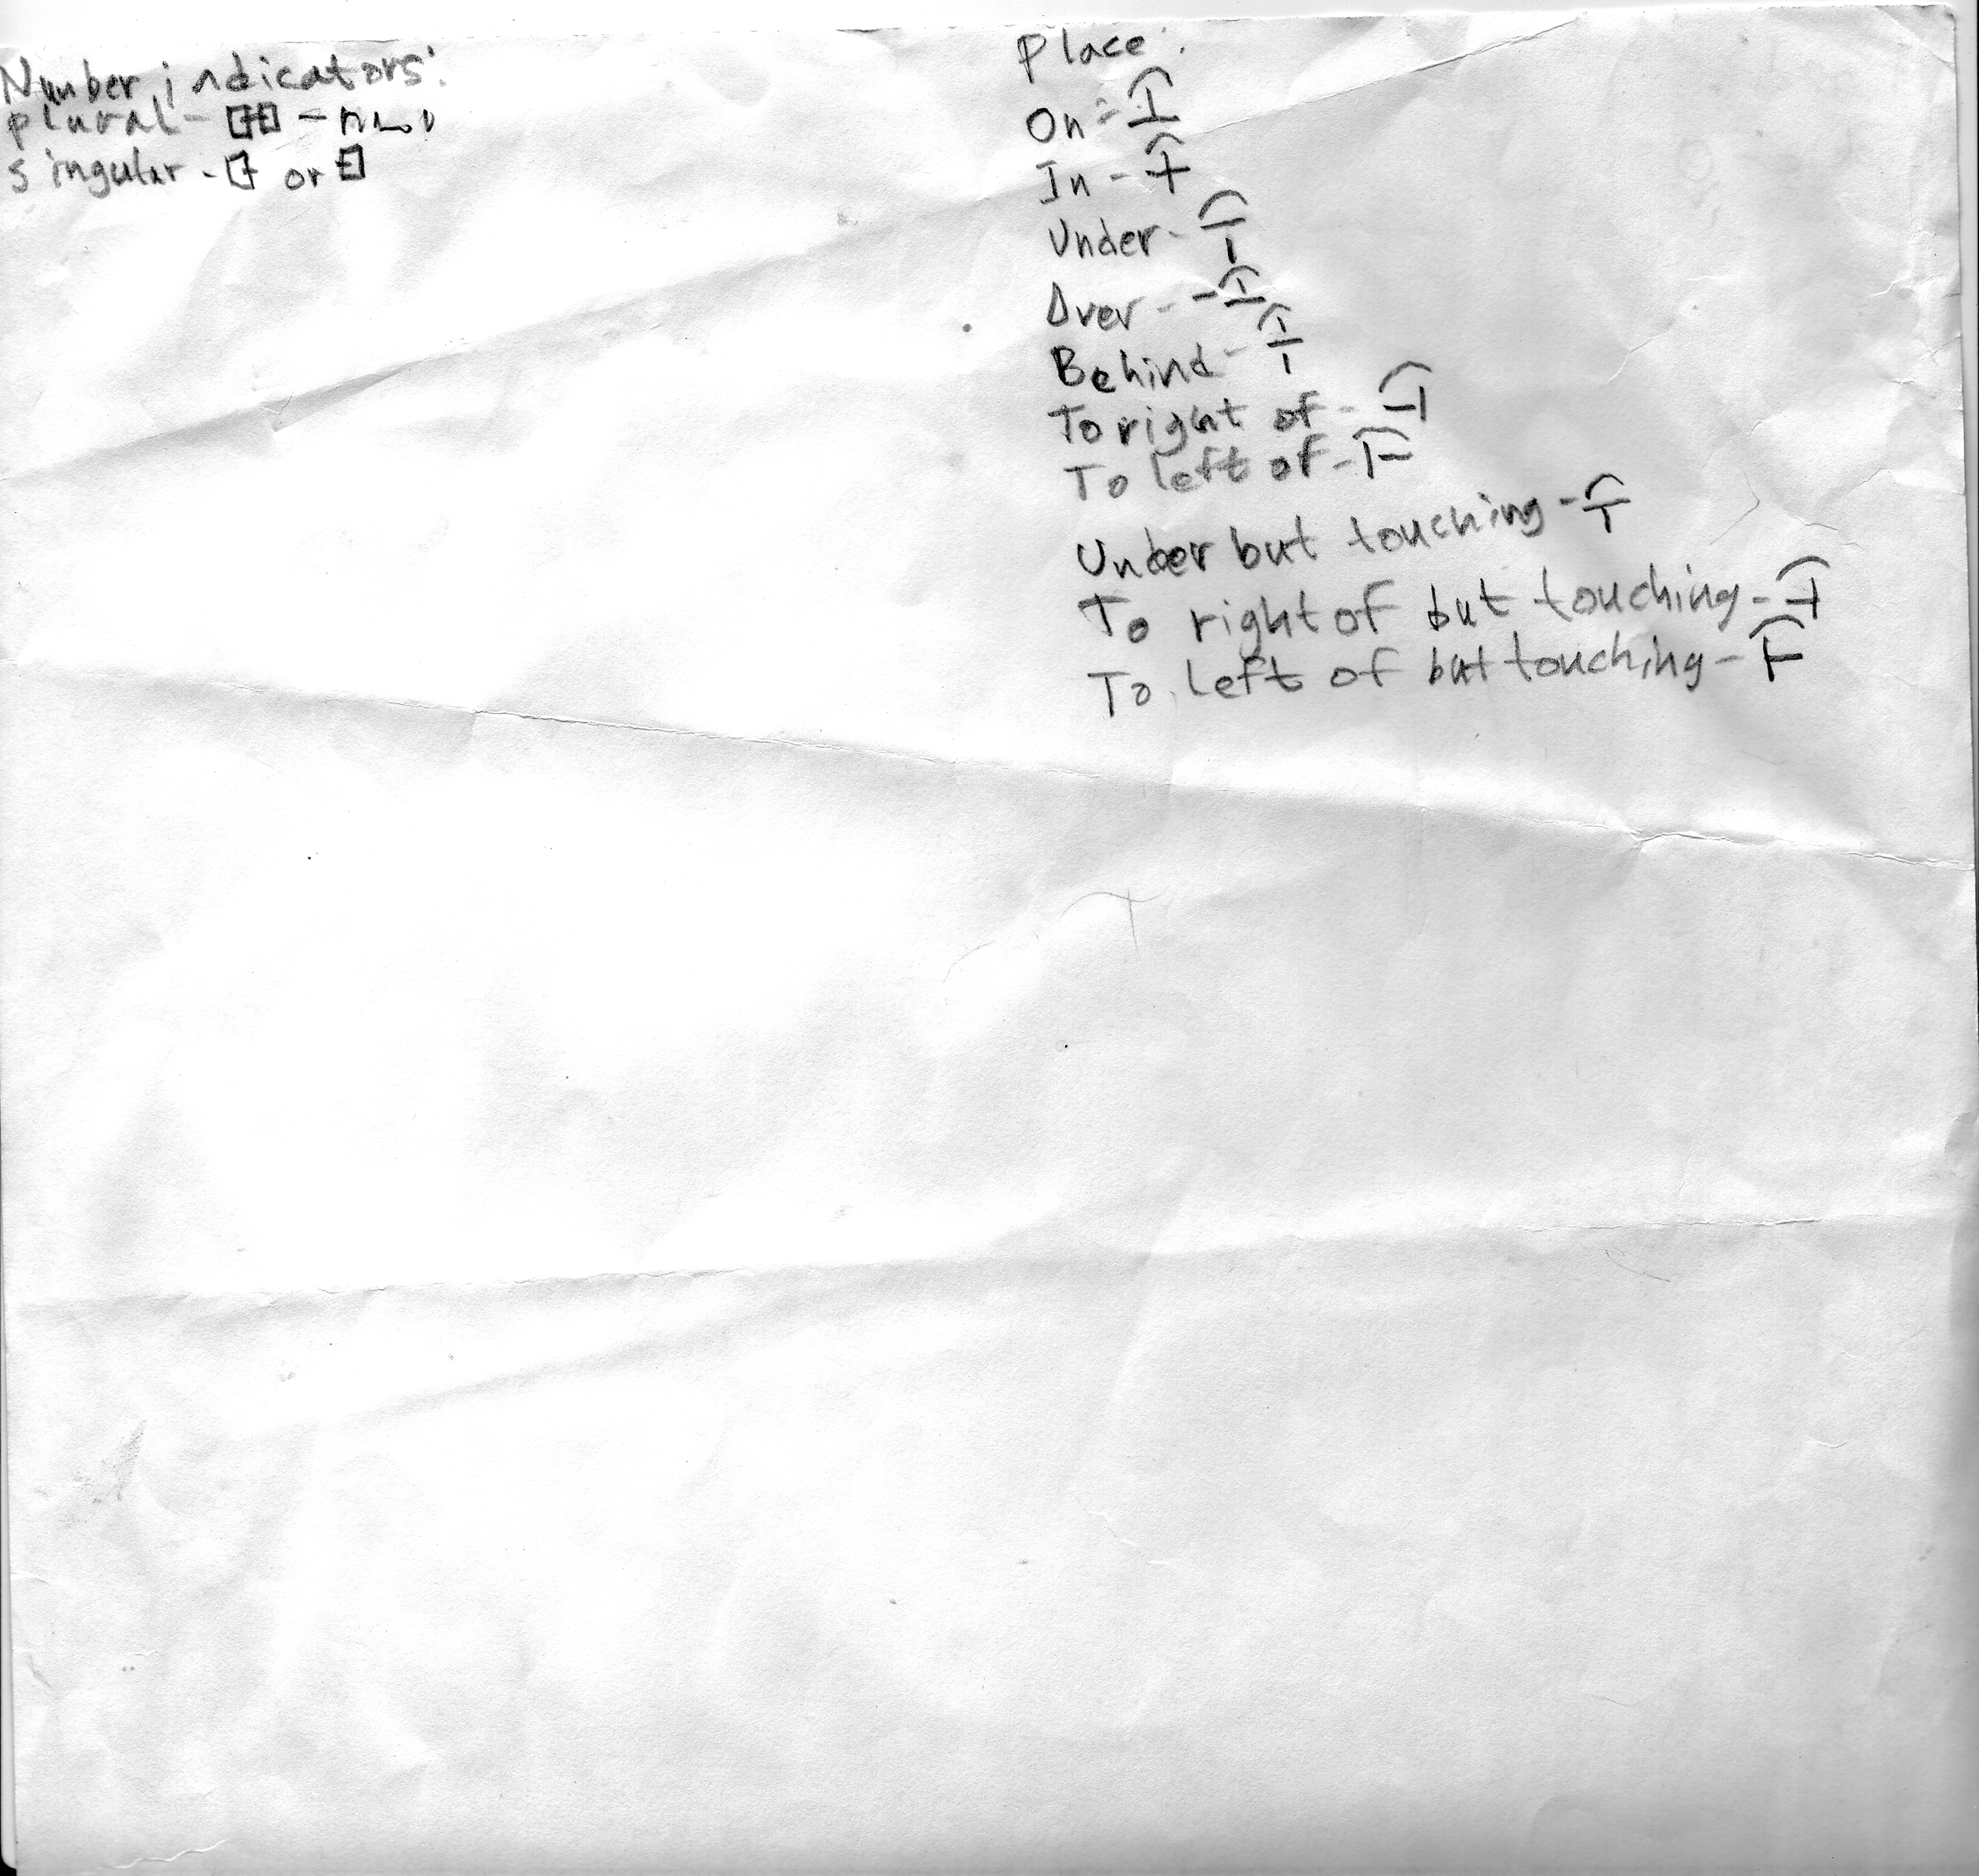 Number indicators:
plural -
singular - or
Place:
On -
In -
Under -
Over -
Behind -
To right of -
To left of -
Under but touching -
To right of but touching -
To left of but touching -